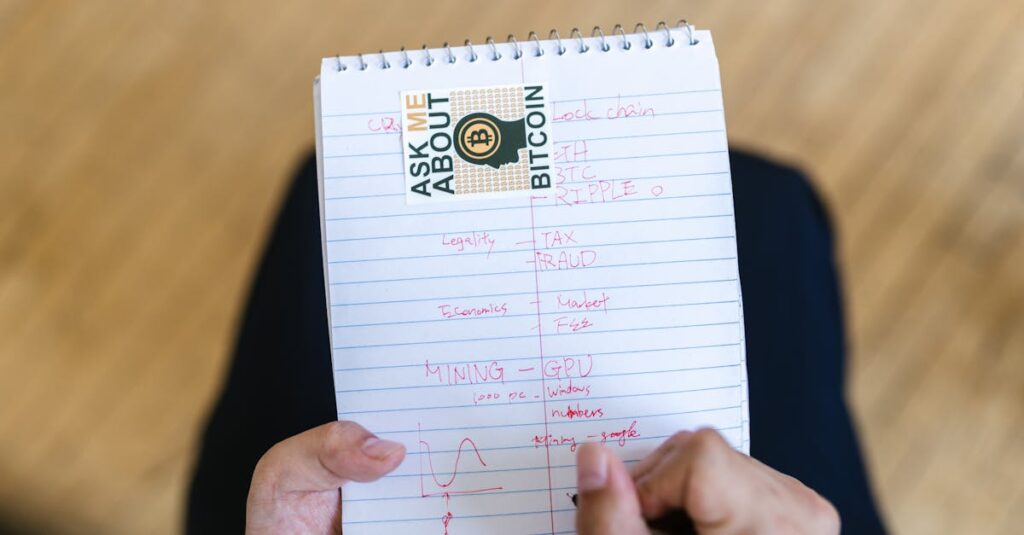 ASK ME
ABOUT
BITCOIN
Lock chain
TH
BTC
RIPPLE
Legality - TAX
- FRAUD
Economics - Market
- Fee
MINING - GPU
1,000 pc - Windows
numbers
- google